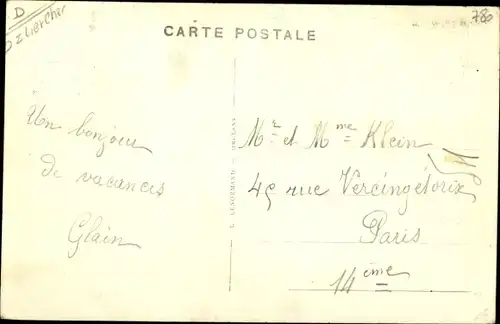 D
CARTE POSTALE
780
Un bonjour
de vacances
Glain
L. LENORMAND — ORLÉANS
Mr et Mme Klein
45 rue Vercingétorix
Paris
14ème